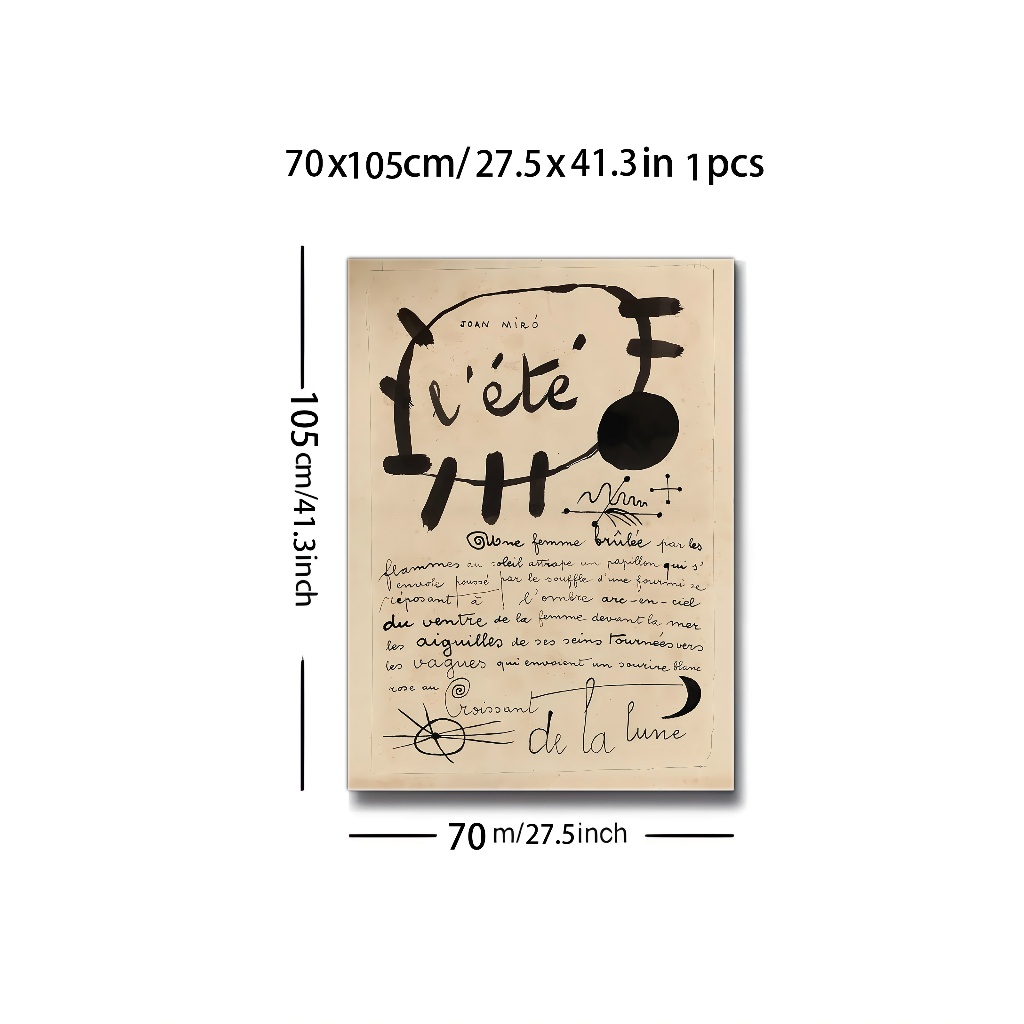 70x105cm/27.5x41.3in 1pcs
JOAN MIRÓ
l'été
Une femme brûlée par les
flammes au soleil attrape un papillon qui s'
envole poussé par le souffle d'une fourmi se
réposant à l'ombre arc-en-ciel
du ventre de la femme devant la mer
les aiguilles de ses seins tournées vers
les vagues qui envoient un sourire blanc
rose au Croissant
de la lune
105cm/41.3inch
70 m/27.5inch